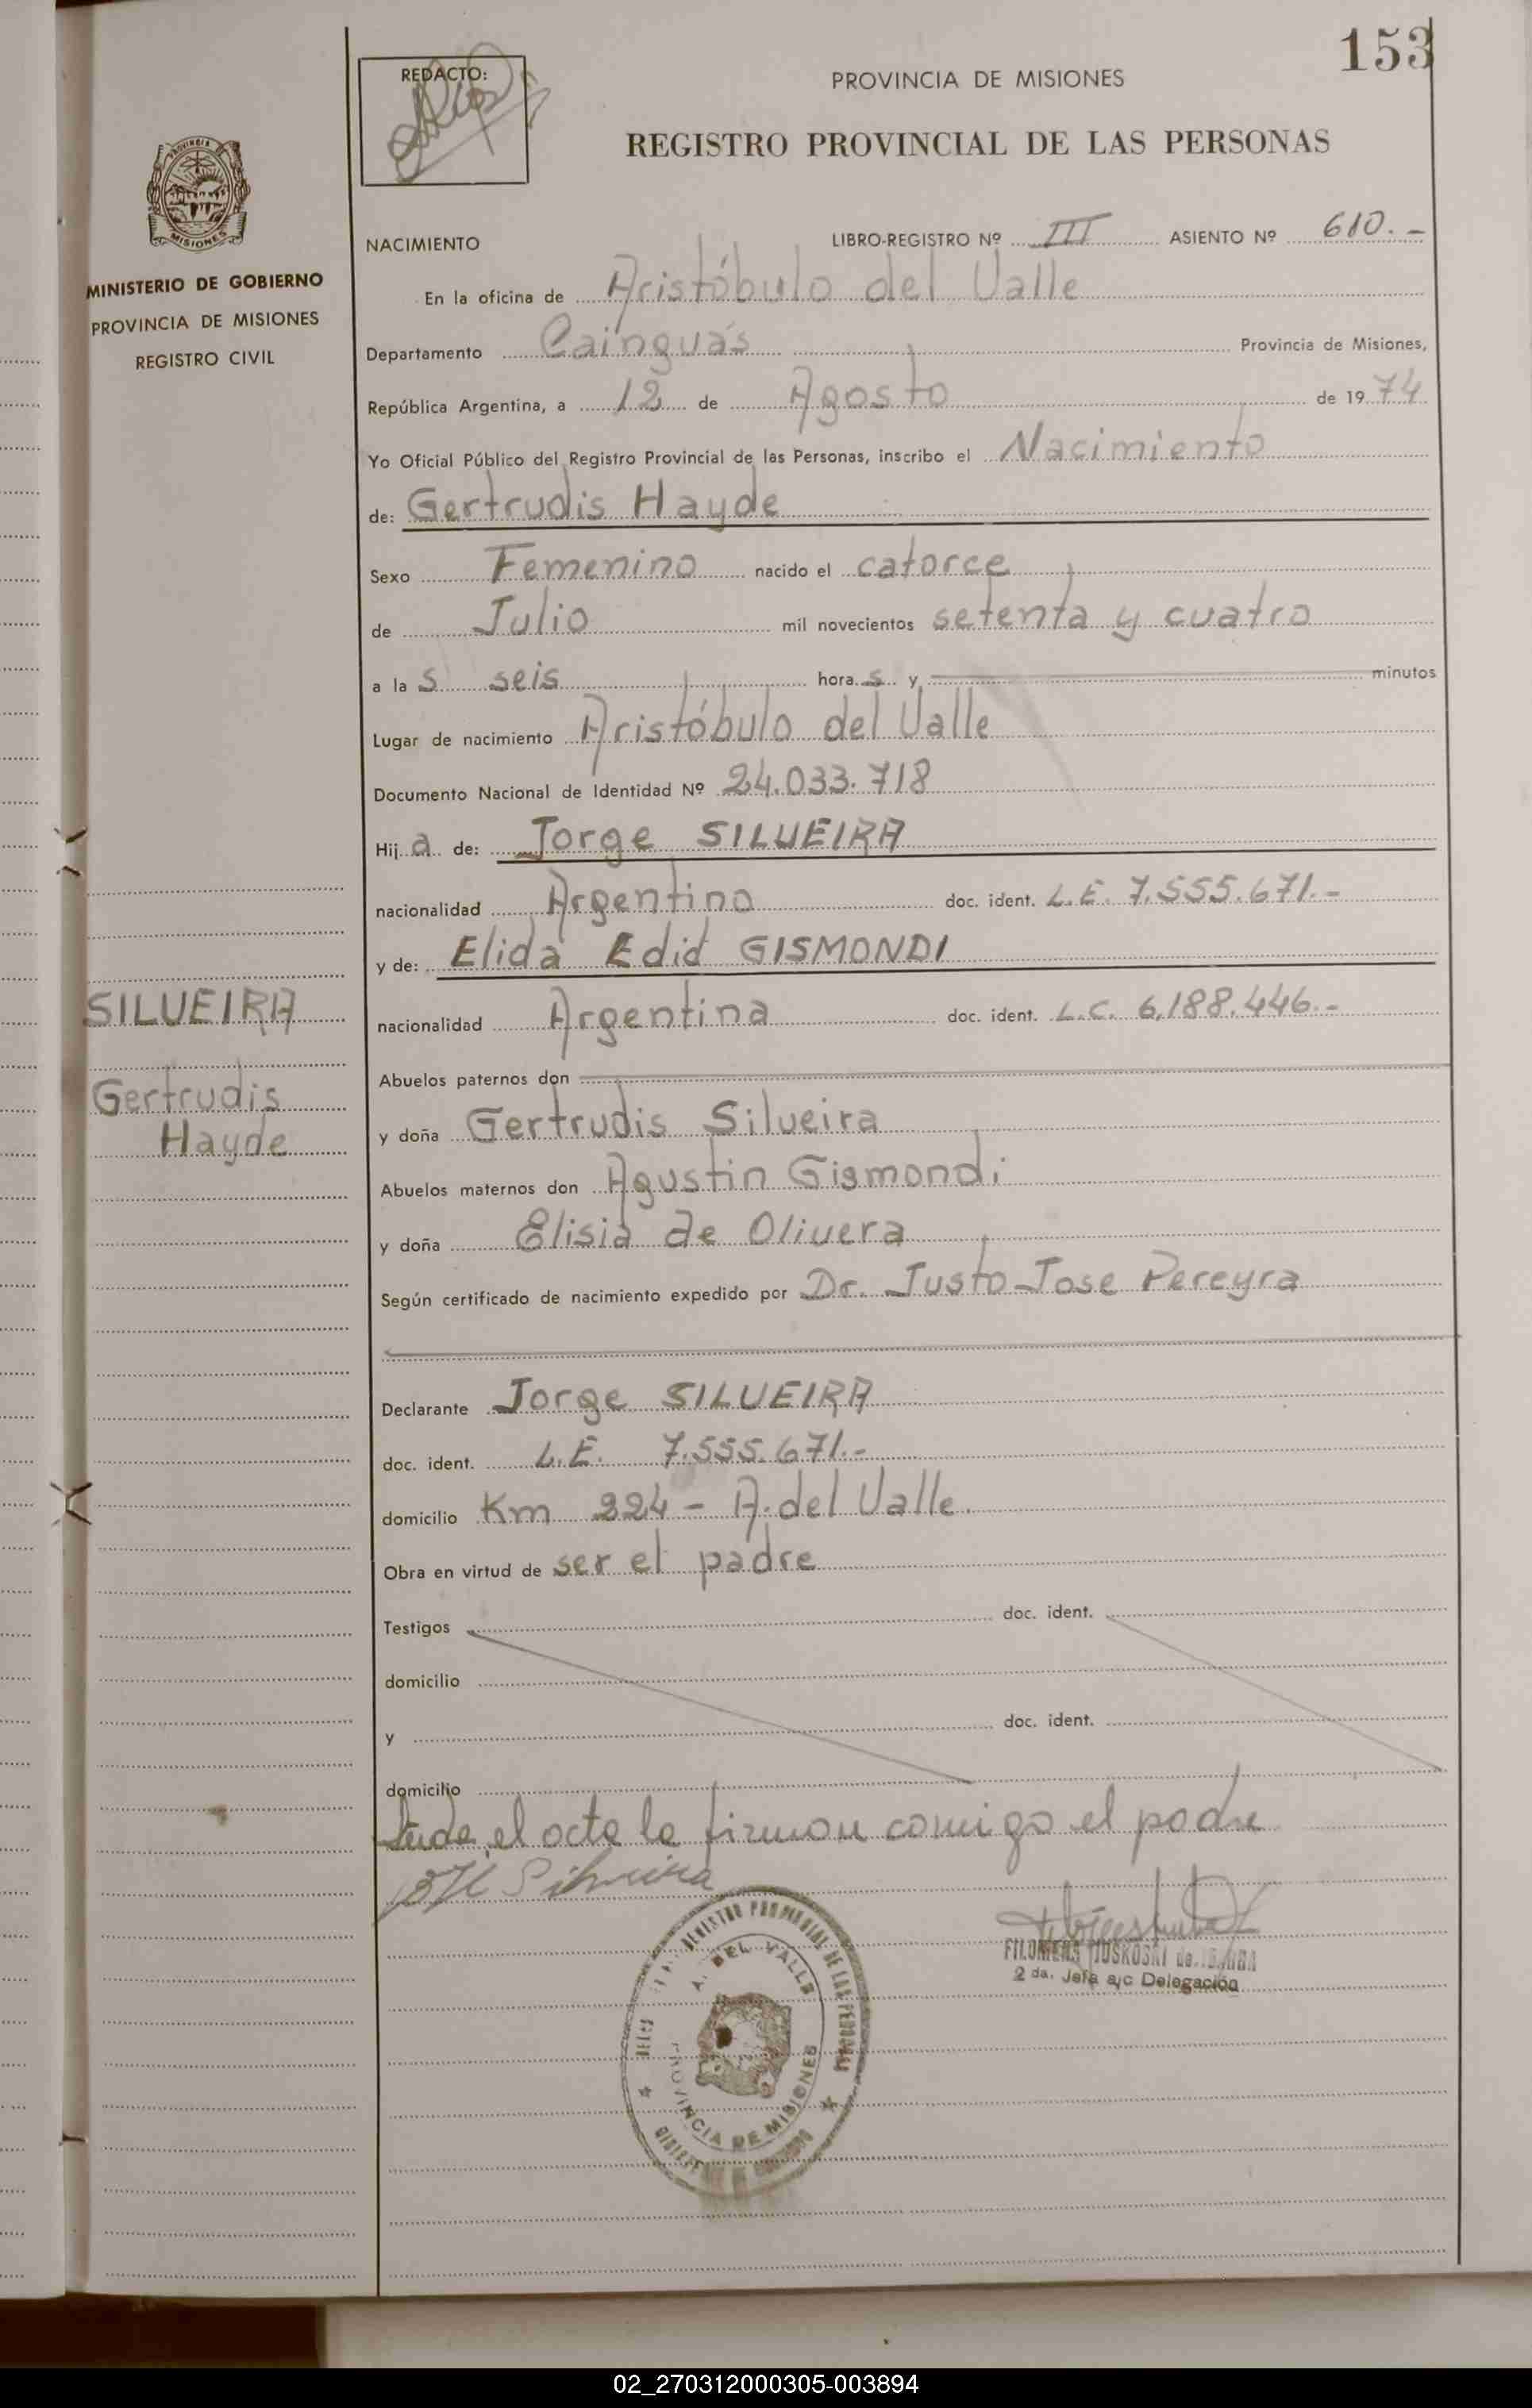 153
REDACTO:
PROVINCIA DE MISIONES
REGISTRO PROVINCIAL DE LAS PERSONAS
MISIONES
MINISTERIO DE GOBIERNO
PROVINCIA DE MISIONES
REGISTRO CIVIL
NACIMIENTO LIBRO-REGISTRO Nº III ASIENTO Nº 610.-
En la oficina de Aristóbulo del Valle
Departamento Cainguás Provincia de Misiones,
República Argentina, a 12 de Agosto de 1974
Yo Oficial Público del Registro Provincial de las Personas, inscribo el Nacimiento
de: Gertrudis Hayde
Sexo Femenino nacido el catorce
de Julio mil novecientos setenta y cuatro
a las seis horas y minutos
Lugar de nacimiento Aristóbulo del Valle
Documento Nacional de Identidad Nº 24.033.718
Hija de: Jorge SILVEIRA
nacionalidad Argentino doc. ident. L.E. 7.555.671.-
y de: Elida Edid GISMONDI
nacionalidad Argentina doc. ident. L.C. 6.188.446.-
SILVEIRA
Gertrudis
Hayde
Abuelos paternos don
y doña Gertrudis Silveira
Abuelos maternos don Agustin Gismondi
y doña Elisia de Olivera
Según certificado de nacimiento expedido por Dr. Justo Jose Pereyra
Declarante Jorge SILVEIRA
doc. ident. L.E. 7.555.671.-
domicilio Km 224 - A. del Valle
Obra en virtud de ser el padre
Testigos doc. ident.
domicilio
y doc. ident.
domicilio
Leida el acta la firman comigo el padre
Silveira
REGISTRO PROVINCIAL DE LAS PERSONAS
A. DEL VALLE
PROVINCIA DE MISIONES
2 da. Jefa a/c Delegación
02_270312000305-003894